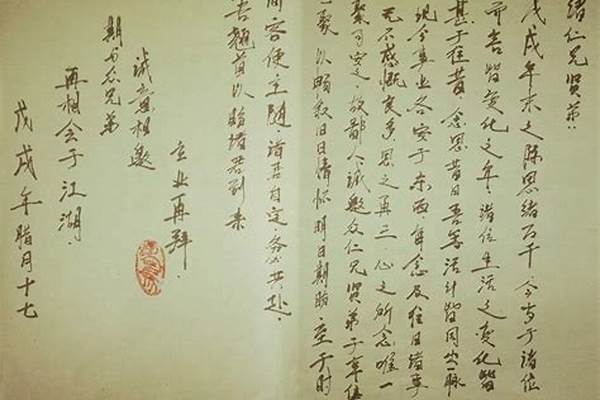 诸仁兄贤弟：
戊戌年末之际思绪万千今与于诸位
而言皆变化之年，诸位生活之变化皆
甚于往昔，念思昔日吾等活计皆同出一脉
现今事业各安于东西每念及往日诸事
无不感慨良多，思之再三心之所念唯一
聚可安之，故鄙人诚邀众仁兄贤弟于年
一聚以畅叙旧日情怀明日期盼至于时
间客便主随，诸君自定，务必共赴，
吾翘首以盼诸君到来
立业再拜，
诚意相邀
期与众兄弟
再相会于江湖，
戊戌年腊月十七